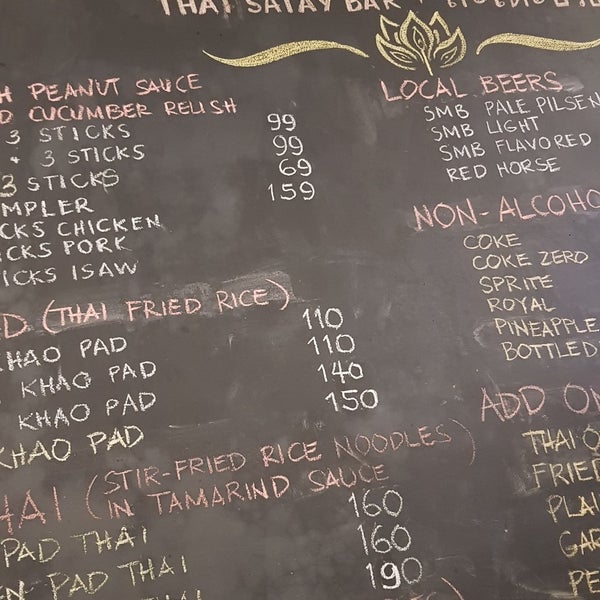 THAI SATAY BAR
PEANUT SAUCE
CUCUMBER RELISH
3 STICKS 99
3 STICKS 99
3 STICKS 69
159
STICKS CHICKEN
PORK
ISAW
(THAI FRIED RICE)
KHAO PAD 110
KHAO PAD 110
KHAO PAD 140
KHAO PAD 150
(STIR-FRIED RICE NOODLES)
IN TAMARIND SAUCE
PAD THAI 160
PAD THAI 160
190
LOCAL BEERS
SMB PALE PILSEN
SMB LIGHT
SMB FLAVORED
RED HORSE
NON-ALCOHO
COKE
COKE ZERO
SPRITE
ROYAL
PINEAPPLE
BOTTLED
ADD ON
THAI
FRIED